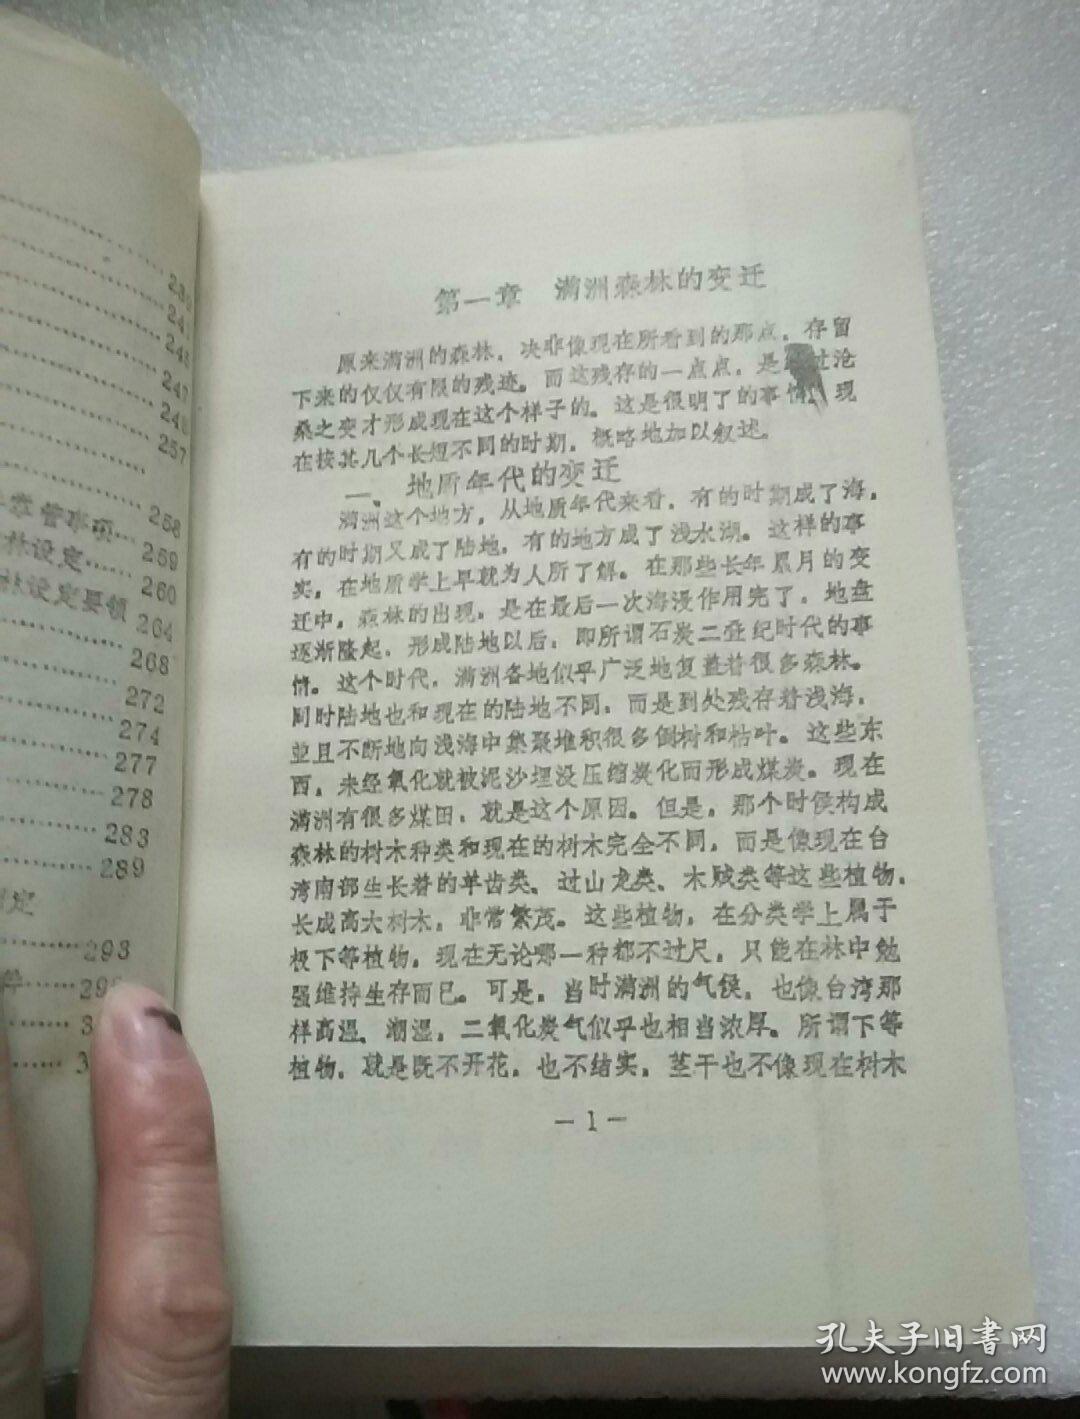 239
241
246
247
248
257
258
章管事项…259
林设定……260
林设定要领 264
268
272
274
277
278
283
289
定
293
29
3
3
第一章 满洲森林的变迁
原来满洲的森林，决非像现在所看到的那点，存留
下来的仅仅有限的残迹。而这残存的一点点，是 过沧
桑之变才形成现在这个样子的。这是很明了的事情，现
在按其几个长短不同的时期，概略地加以叙述。
一、地质年代的变迁
满洲这个地方，从地质年代来看，有的时期成了海，
有的时期又成了陆地，有的地方成了浅水湖。这样的事
实，在地质学上早就为人所了解。在那些长年累月的变
迁中，森林的出现，是在最后一次海浸作用完了，地盘
逐渐隆起，形成陆地以后，即所谓石炭二叠纪时代的事
情。这个时代，满洲各地似乎广泛地复盖着很多森林。
同时陆地也和现在的陆地不同，而是到处残存着浅海，
並且不断地向浅海中集聚堆积很多倒树和枯叶。这些东
西，未经氧化就被泥沙埋没压缩炭化而形成煤炭。现在
满洲有很多煤田，就是这个原因。但是，那个时侯构成
森林的树木种类和现在的树木完全不同，而是像现在台
湾南部生长着的羊齿类、过山龙类、木贼类等这些植物，
长成高大树木，非常繁茂。这些植物，在分类学上属于
极下等植物，现在无论哪一种都不过尺，只能在林中勉
强维持生存而已。可是，当时满洲的气侯，也像台湾那
样高温、潮湿，二氧化炭气似乎也相当浓厚。所谓下等
植物，就是既不开花，也不结实，茎干也不像现在树木
—1—
孔夫子旧书网
www.kongfz.com